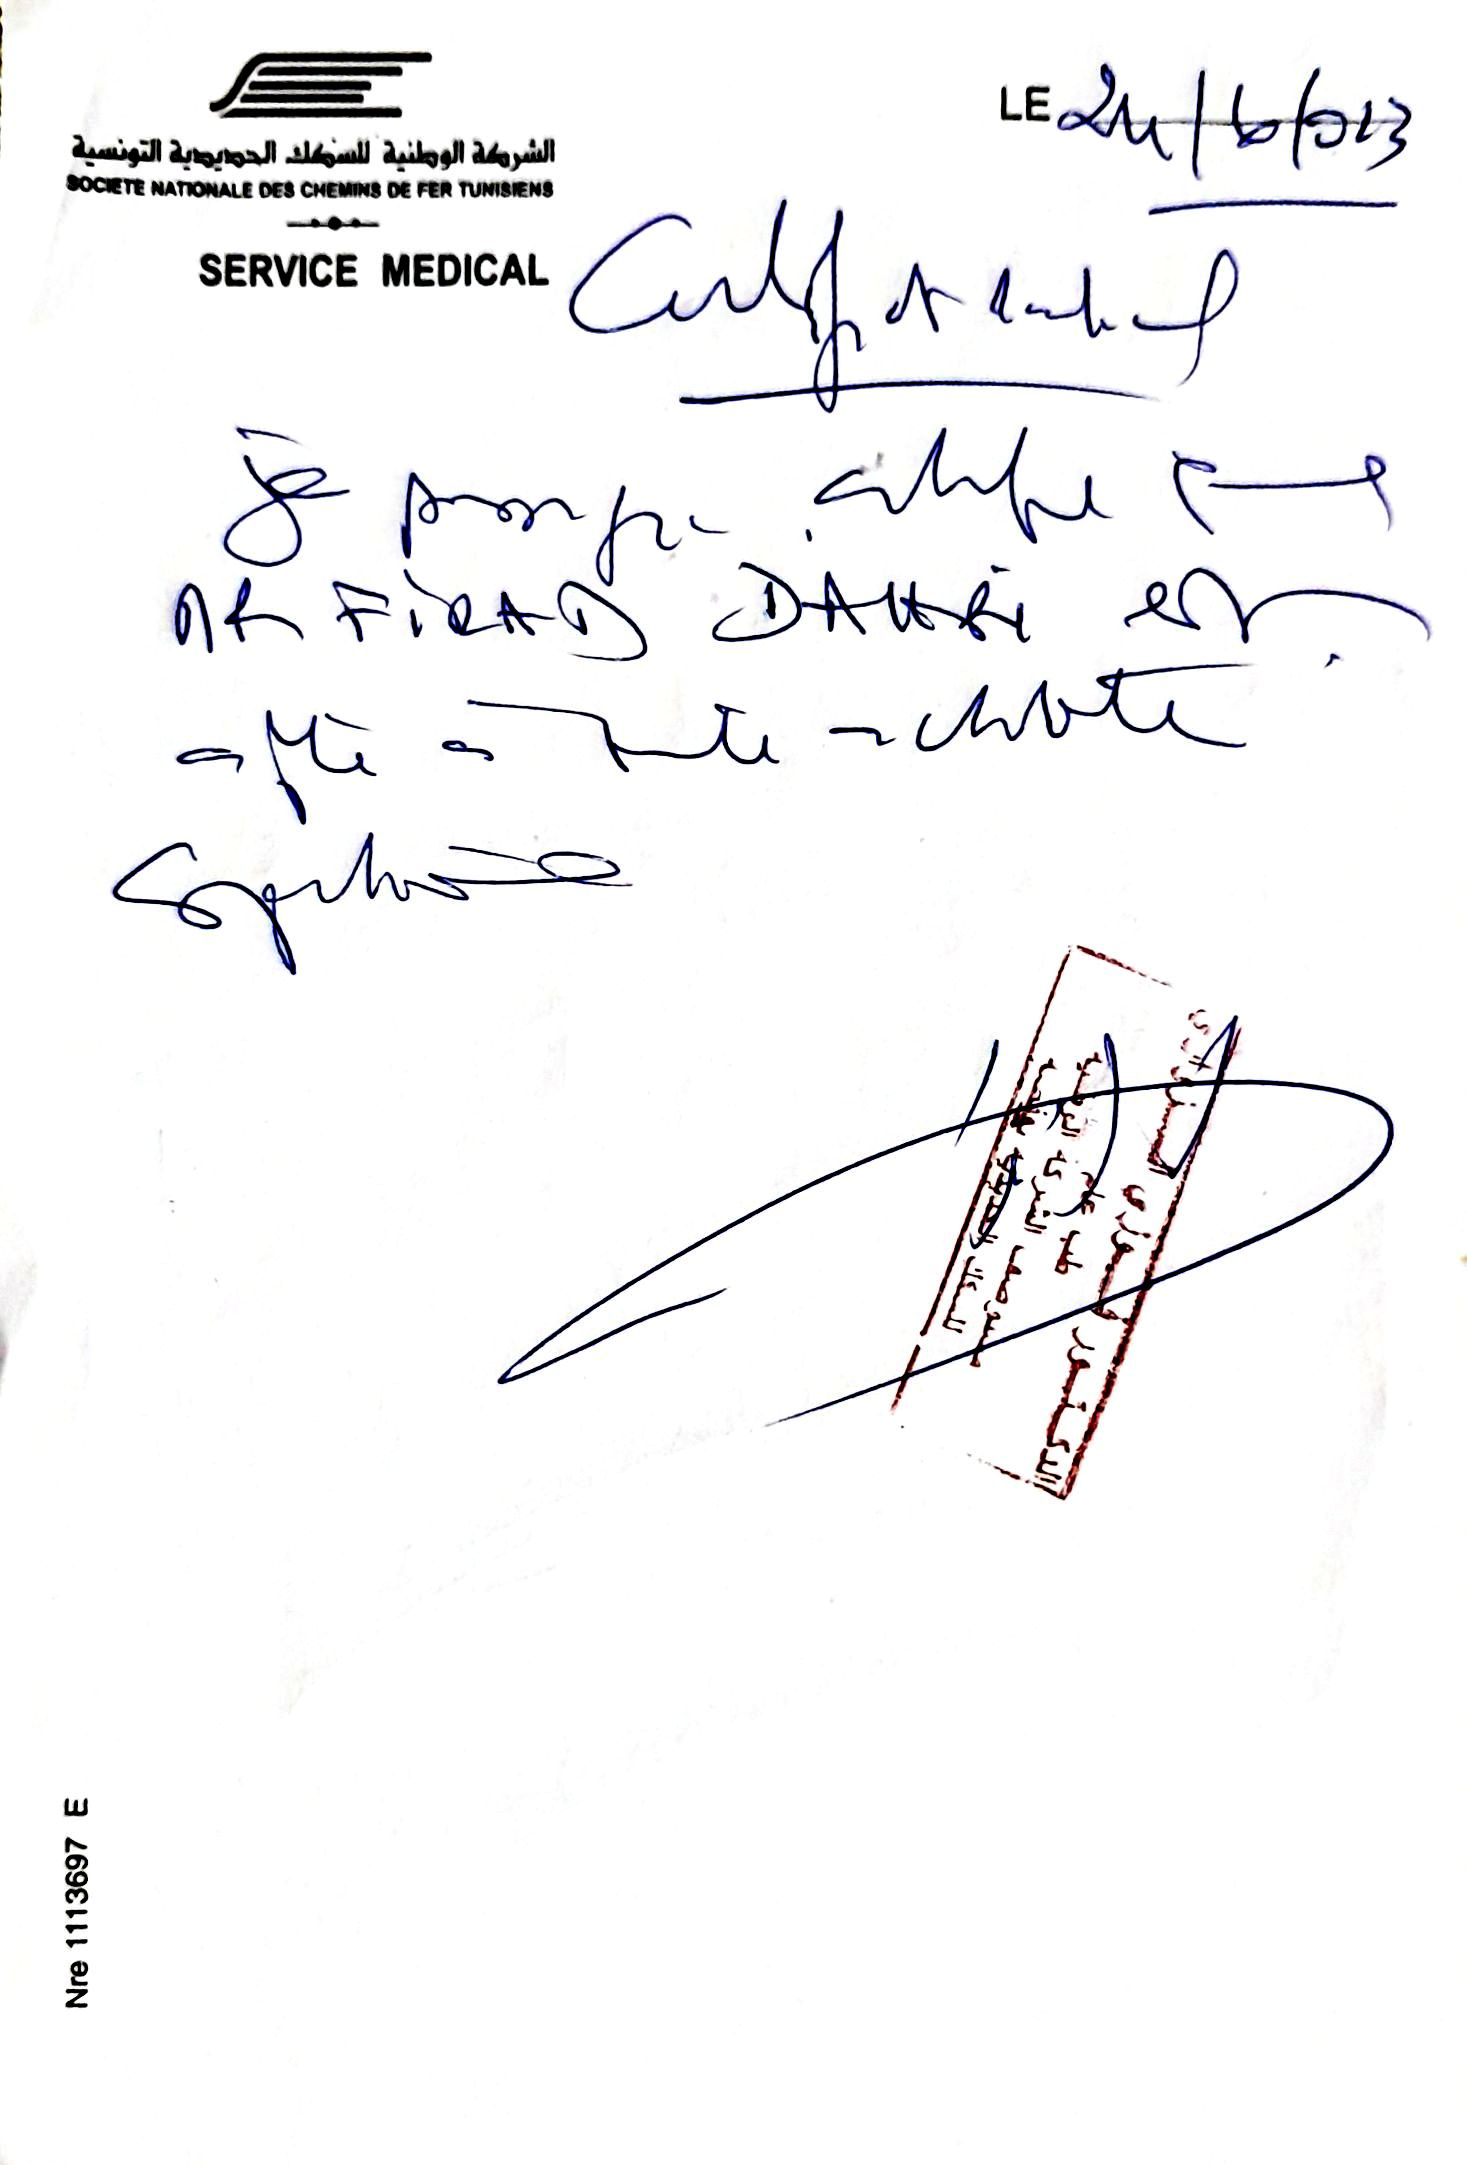 الشركة الوطنية للسكك الحديدية التونسية
SOCIETE NATIONALE DES CHEMINS DE FER TUNISIENS
SERVICE MEDICAL
LE 24/6/2023
Certificat Medical
Je soussigné certifie que
Mr FIRAD DAHBI est
apte à toute activité
Sportive
الدكتور فوزي
طبيب عام
للسكك الحديدية
Nre 1113697 E